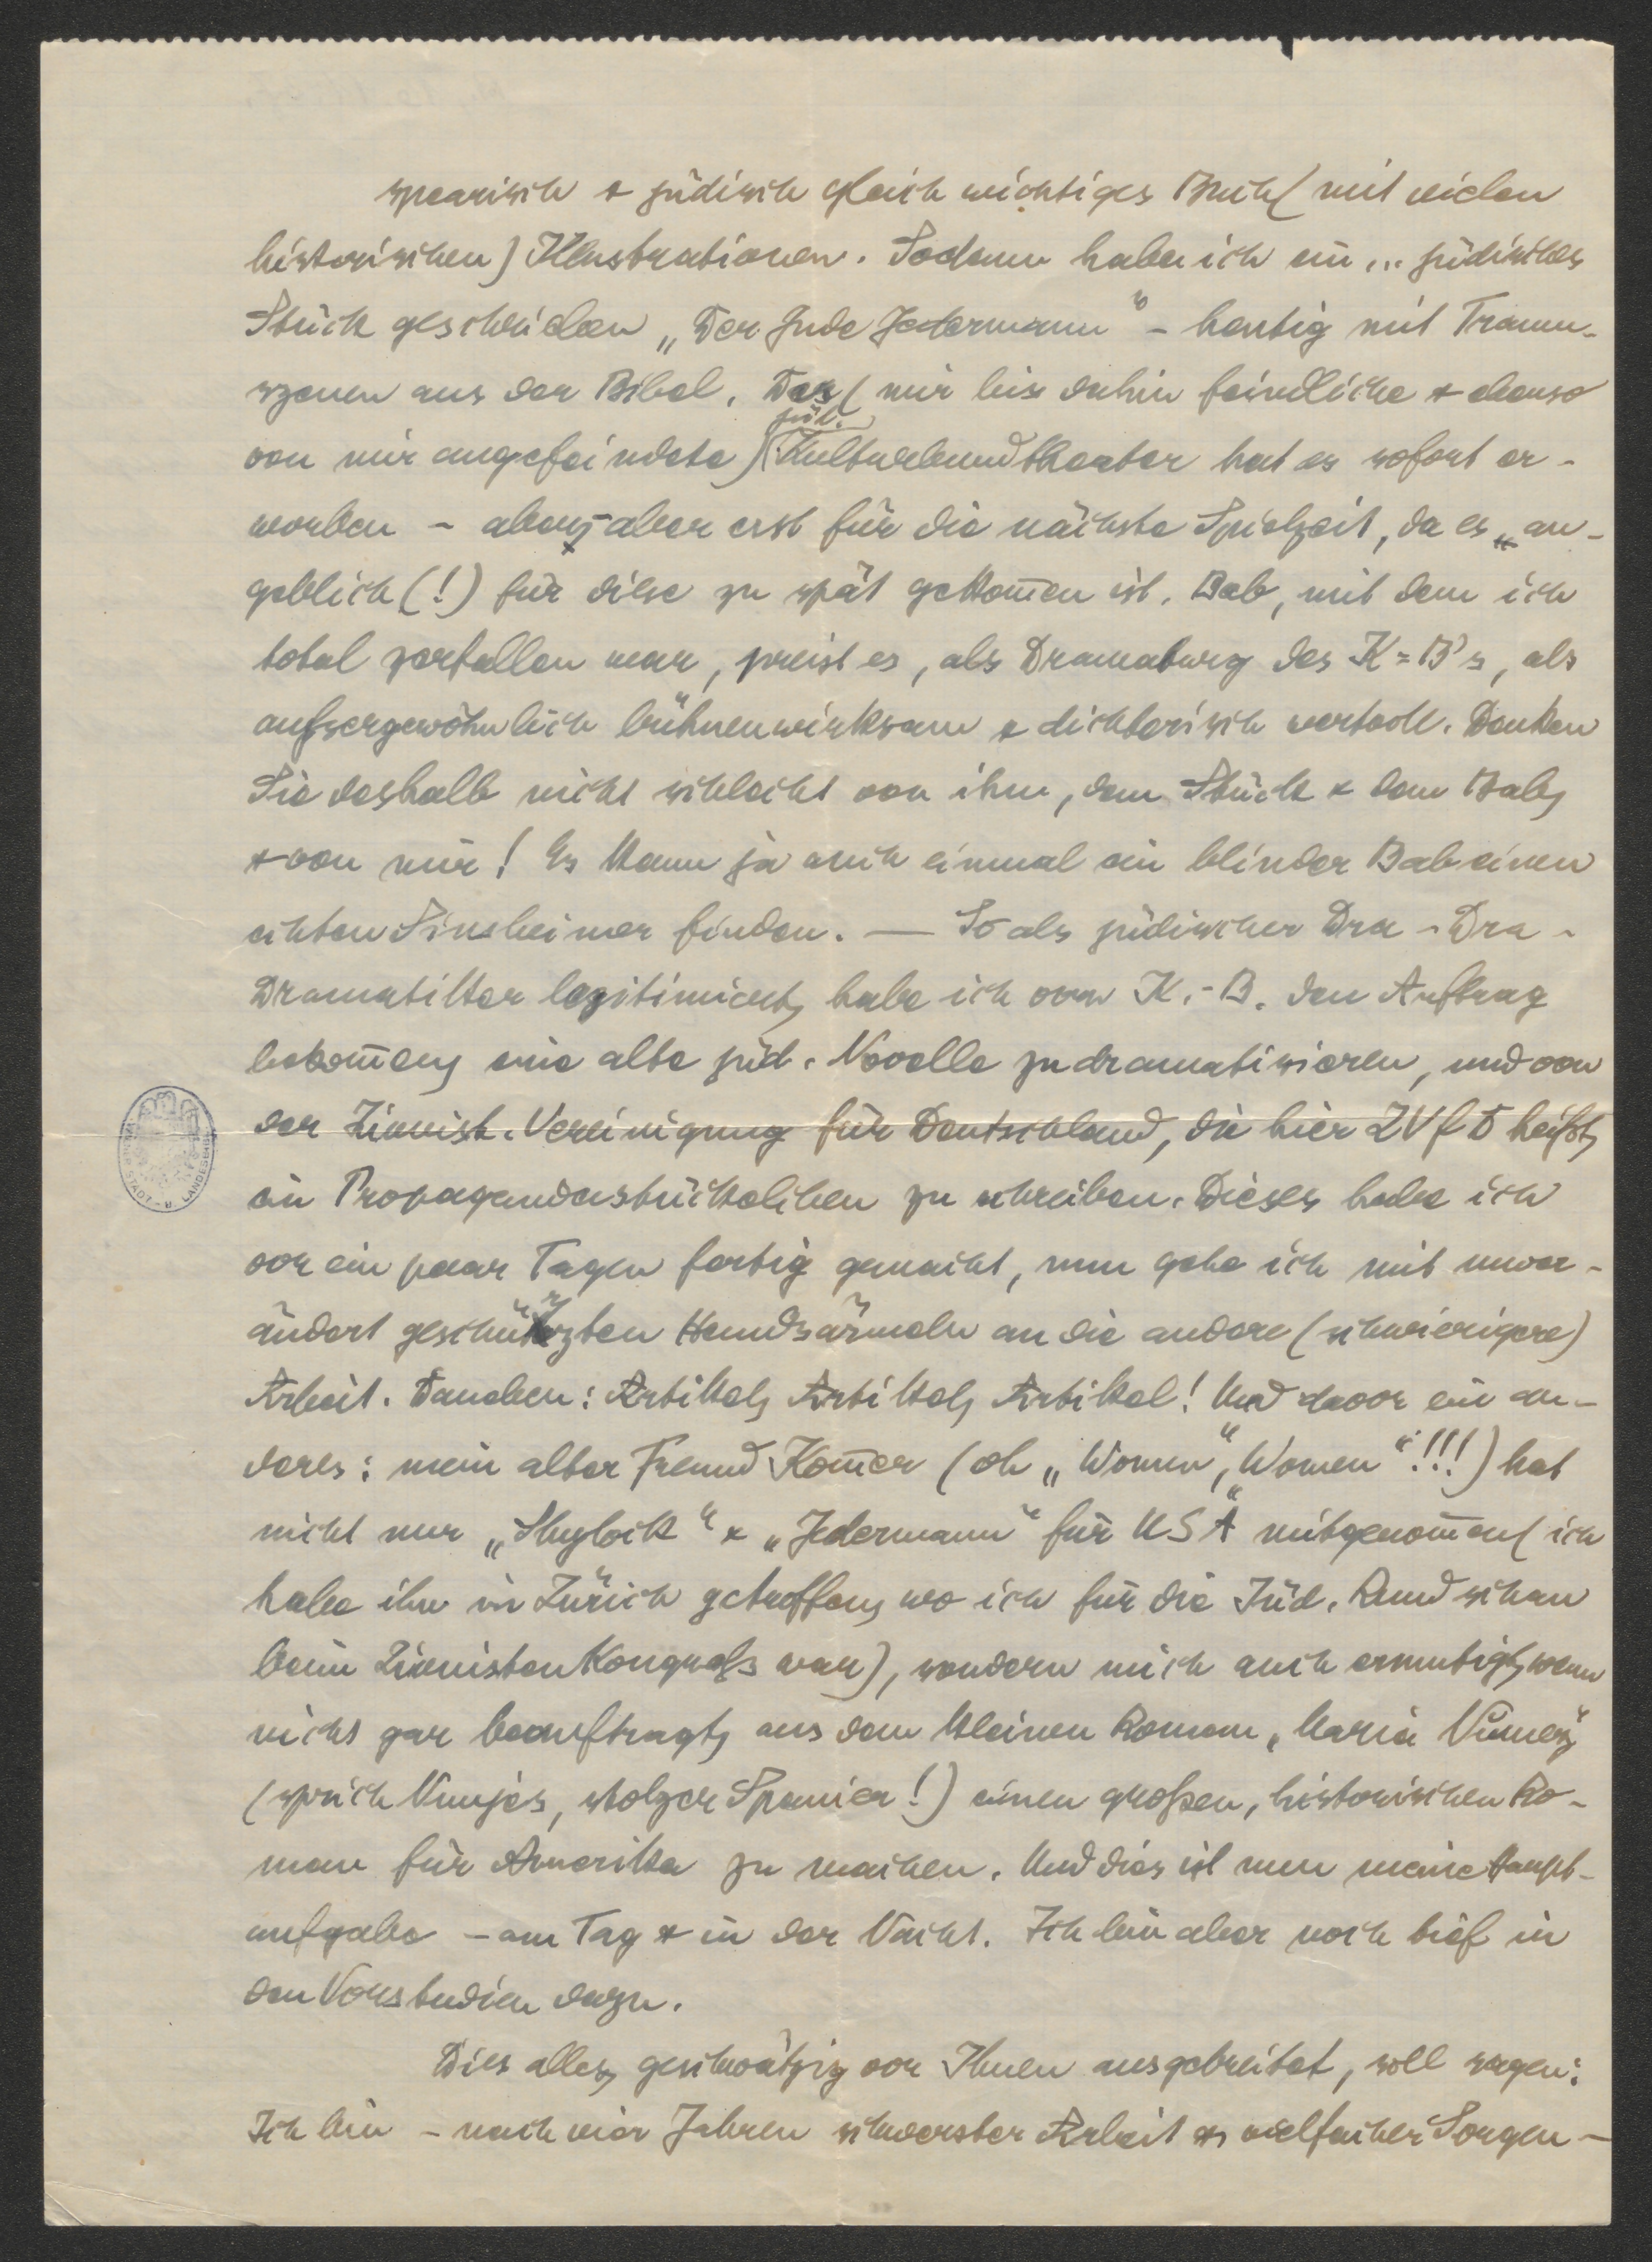 spearisch & jüdisch gleich wichtiges Buch (mit vielen
historischen) Illustrationen. Sodann habe ich ein ... jüdisches
Stück geschrieben „Der Jude Jedermann" – heutig mit Traum-
szenen aus der Bibel. Das (mir bis dahin feindliche & ebenso
von mir angefeindete) jüd. Kulturbundtheater hat es sofort er-
worben – aber erst für die nächste Spielzeit, da es an-
geblich (!) für diese zu spät gekom̄en ist. Bab, mit dem ich
total zerfallen war, preist es, als Dramaturg des K=B's, als
aufsergewöhnlich bühnenwirksam & dichterisch wertvoll. Denken
Sie deshalb nicht schlecht von ihm, dem Stück & dem Bab,
& von mir! Es kann ja auch einmal ein blinder Bab einen
echten Sinsheimer finden. — So als jüdischer Dra - Dra -
Dramatiker legitimiert, habe ich vom K.-B. den Auftrag
bekom̄en, eine alte jüd. Novelle zu dramatisieren, und von
der Zionist. Vereinigung für Deutschland, die hier ZVfD heißt,
ein Propagandastückelchen zu schreiben. Dieses habe ich
vor ein paar Tagen fertig gemacht, nun gehe ich mit unver-
ändert geschürzten Hemdsärmeln an die andere (schwierigere)
Arbeit. Daneben: Artikel, Artikel, Artikel! Und davor ein an-
deres: mein alter Freund Kom̄er (oh „Women", „Women"!!!) hat
nicht nur „Shylock" & „Jedermann" für USA mitgenom̄en (ich
habe ihn in Zürich getroffen, wo ich für die Jüd. Rundschau
beim Zionistenkongreß war), sondern mich auch ermutigt, wenn
nicht gar beauftragt, aus dem kleinen Roman „Maria Nunez"
(sprich Nunjes, stolzer Spanier!) einen großen, historischen Ro-
man für Amerika zu machen. Und dies ist nun meine Haupt-
aufgabe – am Tag & in der Nacht. Ich bin aber noch tief in
den Vorstudien dazu.
Dies alles, geschwätzig vor Ihnen ausgebreitet, soll sagen:
Ich bin – nach vier Jahren schwerster Arbeit & vielfacher Sorgen –